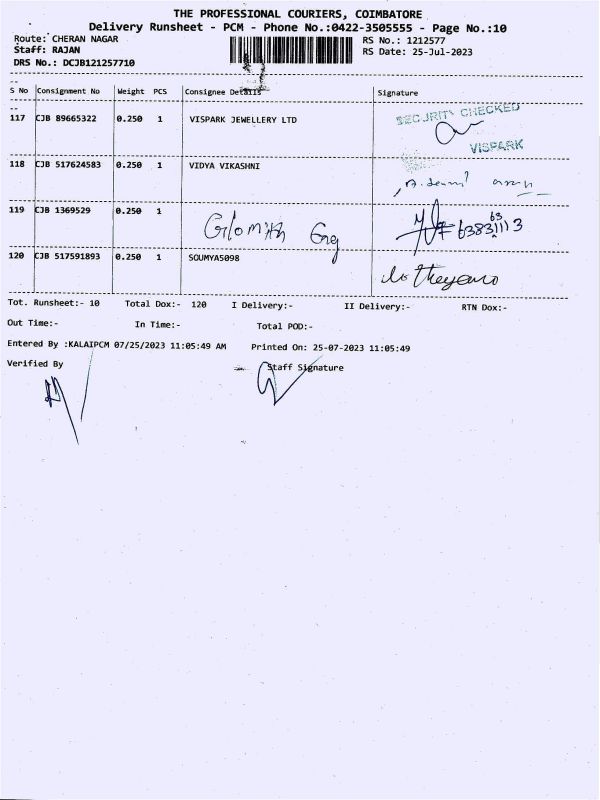 THE PROFESSIONAL COURIERS, COIMBATORE
Delivery Runsheet - PCM - Phone No.:0422-3505555 - Page No.:10
Route: CHERAN NAGAR RS No.: 1212577
Staff: RAJAN RS Date: 25-Jul-2023
DRS No.: DCJB121257710
S No Consignment No Weight PCS Consignee Details Signature
117 CJB 89665322 0.250 1 VISPARK JEWELLERY LTD SECURITY CHECKED
VISPARK
118 CJB 517624583 0.250 1 VIDYA VIKASHNI
119 CJB 1369529 0.250 1
120 CJB 517591893 0.250 1 SOUMYA5098
Tot. Runsheet:- 10 Total Dox:- 120 I Delivery:- II Delivery:- RTN Dox:-
Out Time:- In Time:- Total POD:-
Entered By :KALAIPCM 07/25/2023 11:05:49 AM Printed On: 25-07-2023 11:05:49
Verified By Staff Signature